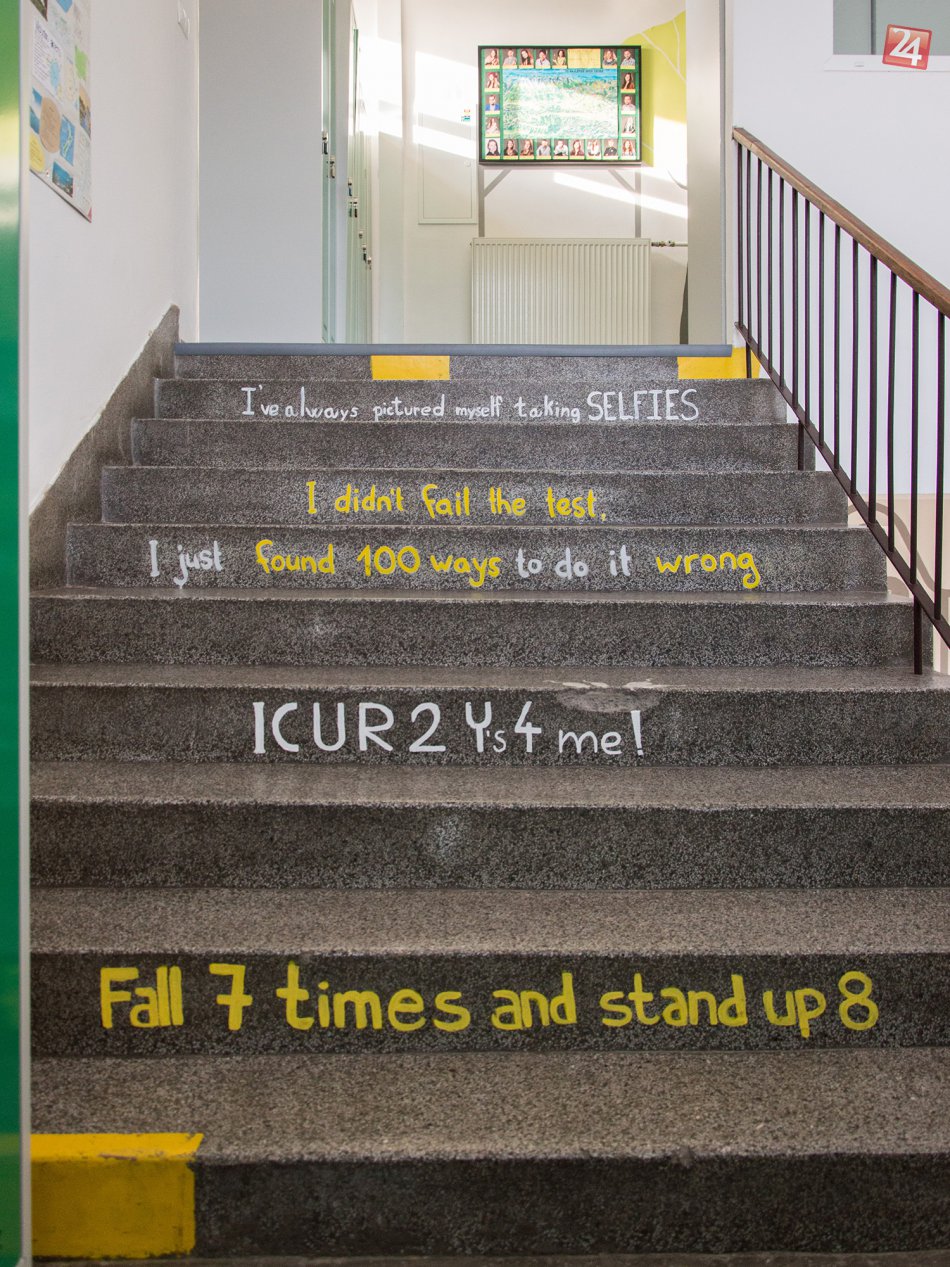 24
I've always pictured myself taking SELFIES
I didn't fail the test.
I just found 100 ways to do it wrong
ICUR2 Y's 4 me!
Fall 7 times and stand up 8